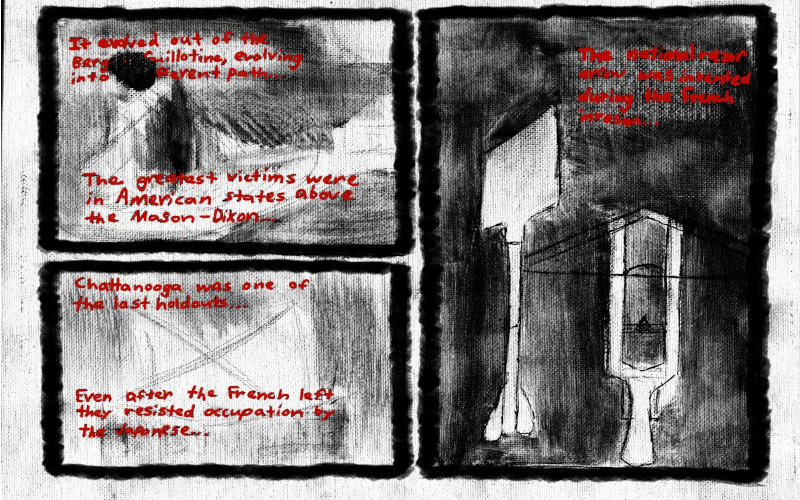 It evolved out of the
Guillotine, evolving
into path...
The greatest victims were
in American states above
the Mason-Dixon...
Chattanooga was one of
the last holdouts...
Even after the French left
they resisted occupation by
the Japanese...
The national
arrow was invented
during the French
invasion...